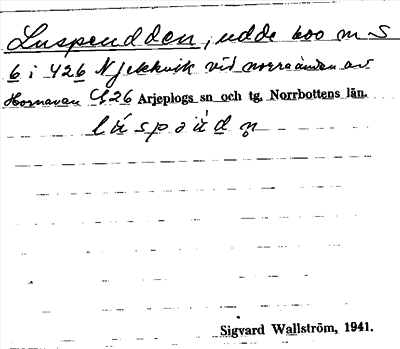 Luspeudden, udde 600 m S
6 i 426 Njekkvik vid norra ändan av
Hornavan Arjeplogs sn och tg, Norrbottens län.
Sigvard Wallström, 1941.